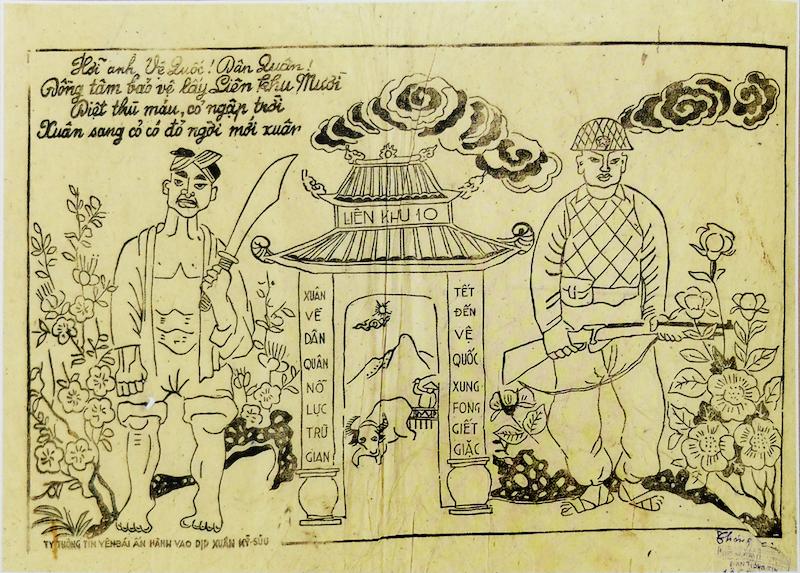 Hỡi anh Vệ Quốc! Dân Quân!
Đồng tâm bảo vệ lấy Liên khu Mười
Diệt thù máu, cỏ ngập trời
Xuân sang cỏ có đỏ ngời mới xuân
LIÊN KHU 10
XUÂN
VỀ
DÂN
QUÂN
NỖ
LỰC
TRỪ
GIAN
TẾT
ĐẾN
VỆ
QUỐC
XUNG
FONG
GIẾT
GIẶC
TY THÔNG TIN YÊNBÁI ẤN HÀNH VÀO DỊP XUÂN KỶ-SỬU